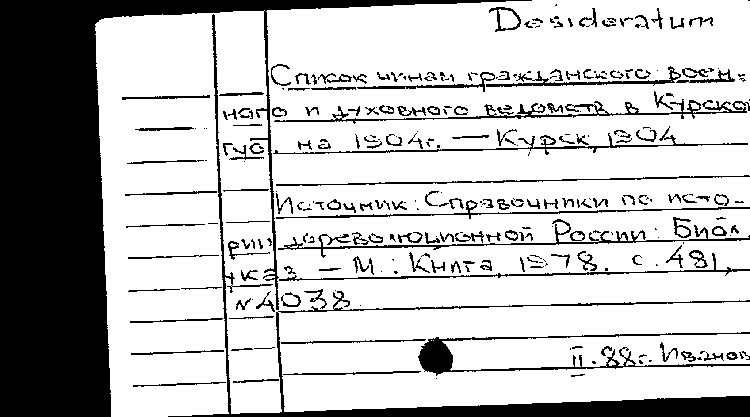 Desideratum
Список чинам гражданского воен-
ного и духовного ведомств в Курской
губ. на 1904г. — Курск, 1904
Источник: Справочники по исто-
рии дореволюционной России: Библ.
указ. — М.: Книга, 1978. с. 481,
№4038.
II.88г. Иванов